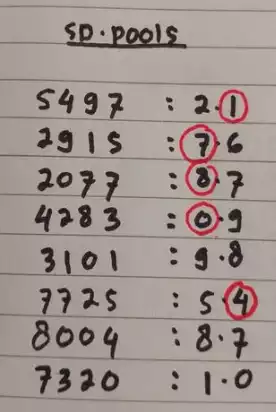 SD.POOLS
5497 : 2.1
2915 : 7.6
2077 : 8.7
4283 : 0.9
3101 : 9.8
7725 : 5.4
8004 : 8.7
7320 : 1.0